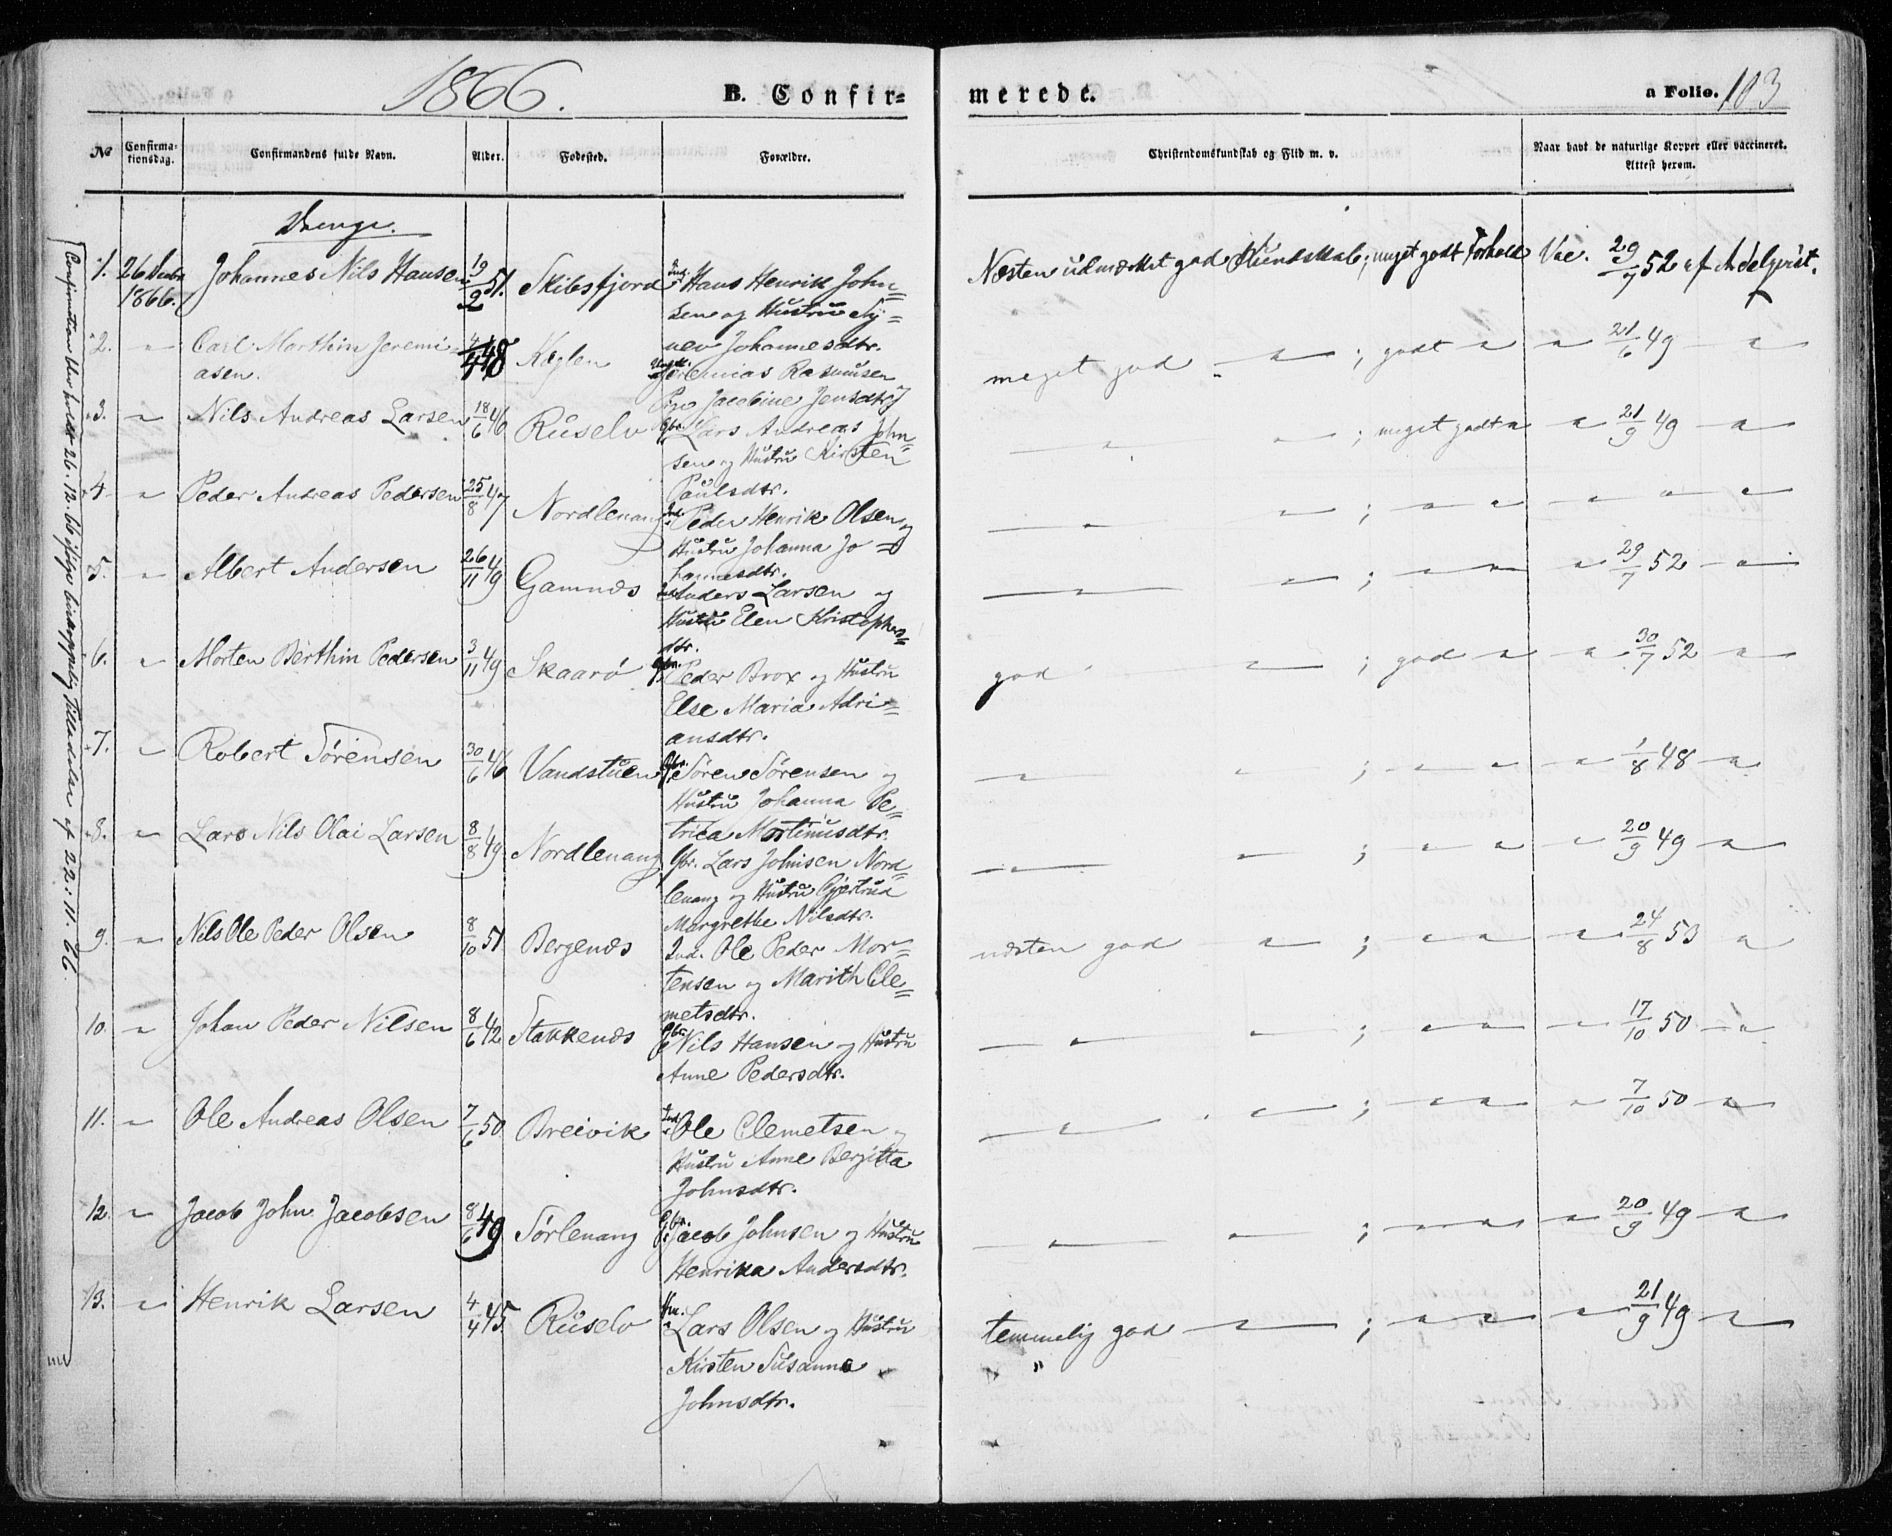 1866. B. Confir=
merede. a Folio. 103
No Confirma-
tionsdag. Confirmandens fulde Navn. Alder. Fødested. Forældre. Christendomskundskab og Flid m. v. Naar havt de naturlige Kopper eller vaccineret.
Attest herom.
Drenge.
1. 26 Decbr 1866. Johannes Nils Hansen 19/2 51. Skibsfjord Ind. Hans Henrik John=
sen og Hustru Sy=
nev Johannesdtr.
Næsten udmærket god Kundskab; meget godt Forhold Vac. 29/7 52 af Adelqvist.
2. " Carl Marthin Jeremi-
asen. 4/4 48 Køglen Ungk. Jeremias Rasmusen
Pige Jacobine Jensdtr
meget god " ; godt " " 21/6 49 "
3. " Nils Andreas Larsen 18/6 46 Ruselv Gbr. Lars Andreas John=
sen og Hustru Kirsten
Paulsdtr.
" " ; meget godt " " 21/9 49 "
4. " Peder Andreas Pedersen 25/8 47 Nordlenang Ind. Peder Henrik Olsen og
Hustru Johanna Jo=
hannesdtr.
" " ; " " " " "
5. " Albert Andersen 26/11 49 Gamnæs Ind. Anders Larsen og
Hustru Elen Kristophers=
dtr.
" " ; " " " 29/7 52 "
6. " Morten Berthin Pedersen 3/11 49 Skaarø Gbr. Peder Brox og Hustru
Else Maria Adri=
ansdtr.
god " ; god " " 30/7 52 "
7. " Robert Sørensen 30/6 46 Vandstuen Gbr. Søren Sørensen og
Hustru Johanna Pe=
trica Mortinusdtr.
" " ; " " " 1/8 48 "
8. " Lars Nils Olai Larsen 8/8 49 Nordlenang Gbr. Lars Johnsen Nord=
lenang og Hustru Gjertrud
Margrethe Nilsdtr.
" " ; " " " 20/9 49 "
9. " Nils Ole Peder Olsen 8/10 51 Bergenæs Ind. Ole Peder Mor=
tensen og Marith Cle=
metsdtr.
næsten god " ; " " " 24/8 53 "
10. " Johan Peder Nilsen 8/6 42 Stakkenæs Gbr. Nils Hansen og Hustru
Anne Pedersdtr.
" " ; " " " 17/10 50 "
11. " Ole Andreas Olsen 7/6 50 Breivik Ind. Ole Clemetsen og
Hustru Anne Bergitta
Johnsdtr.
" " ; " " " 7/10 50 "
12. " Jacob John Jacobsen 8/6 49 Sørlenang Gbr. Jacob Johnsen og Hustru
Henrika Andersdtr.
" " ; " " " 20/9 49 "
13. " Henrik Larsen 4/4 45 Ruselv Lars Olsen og Hustru
Kirsten Susanna
Johnsdtr.
temmelig god " ; " " " 21/9 49 "
"
Confirmation blev holdt 26.12.66 ifølge biskoppelig Tilladelse af 22.11.66.